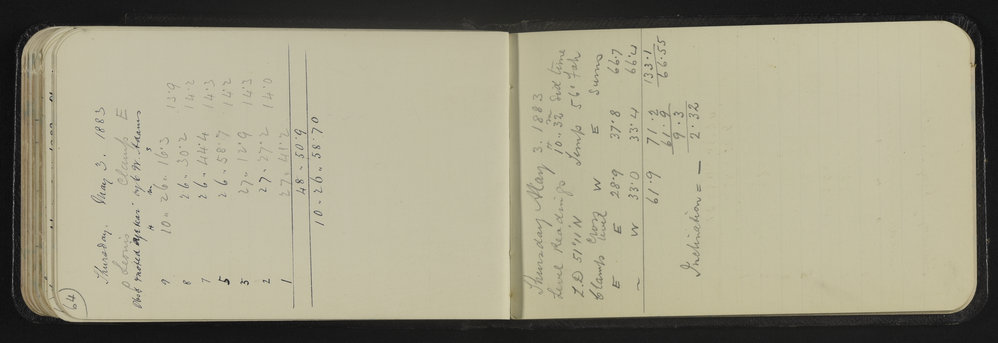 64
Thursday. May 3. 1883
Leonis Clamp E
Obs. by W. Adams
h m s
9 10 .. 26 .. 16.3 13.9
8 26 .. 30.2 14.2
7 26 .. 44.4 14.3
5 26 .. 58.7 14.2
3 27 .. 12.9 14.3
2 27 .. 27.2 14.0
1 27 .. 41.2
48 .. 50.9
10 .. 26 .. 58.70
Thursday May 3. 1883
Level Readings 10 h .. 32 m Sid time
L.D 51°11' N Temp 56° Fah
Clamp Cross level W E Sums
E E 28.9 37.8 66.7
~ W 33.0 33.4 66.4
61.9 71.2 133.1
61.9 66.55
9.3
2.32
Inclination = —